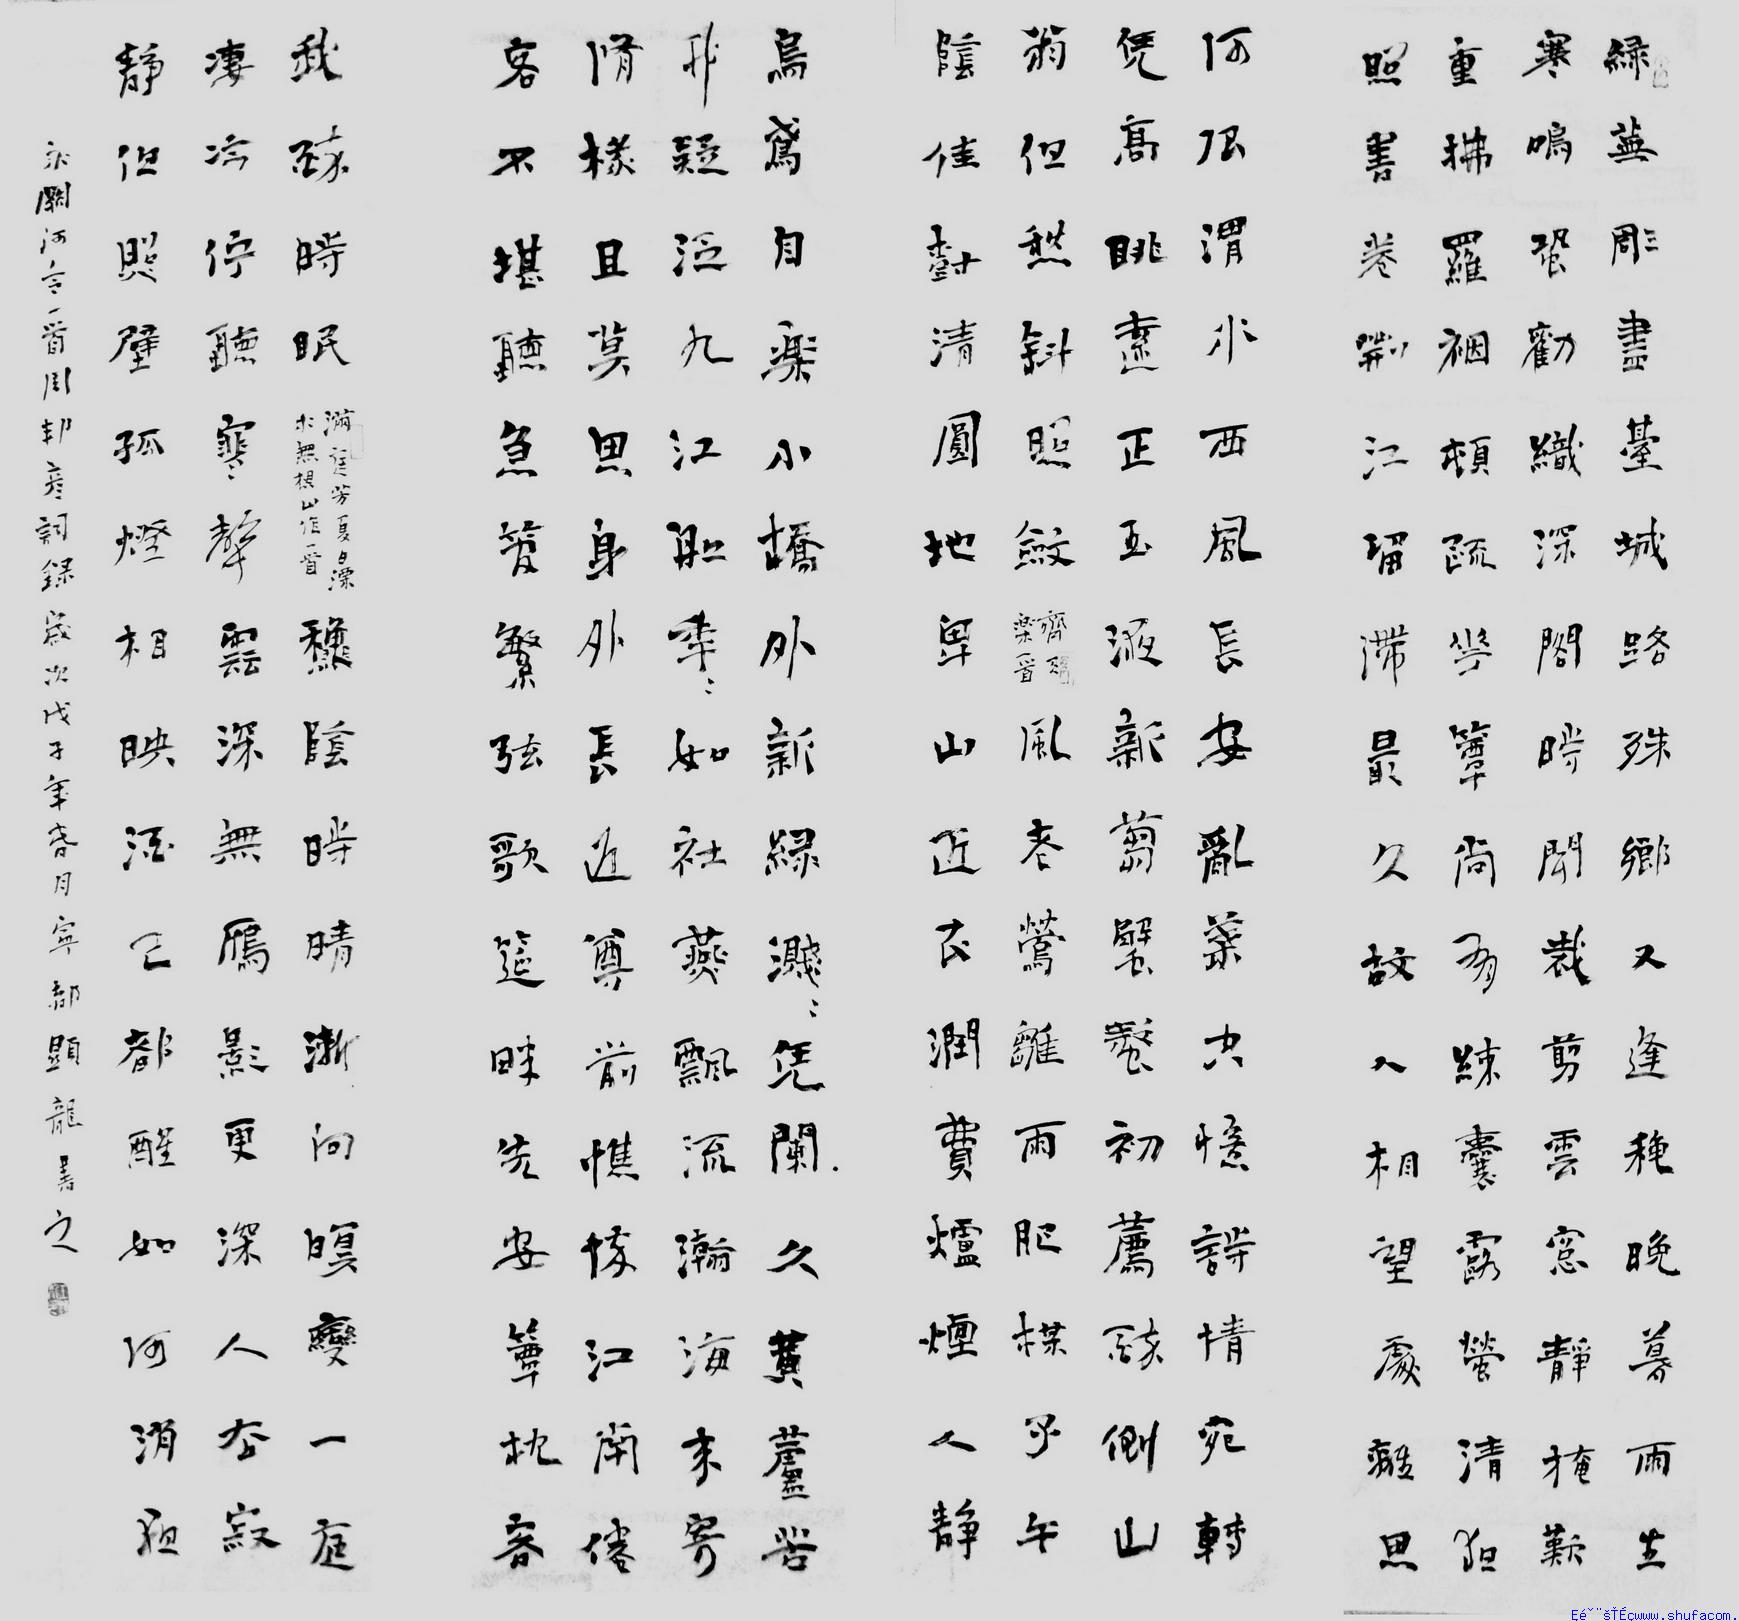 綠蕪彫盡臺城路殊鄉又逢穐晚暮雨生
寒鳴蛩勸織深閣時聞裁剪雲窓靜掩歎
重拂羅裀頓疏華簟尚有練囊露螢清夜
照書卷荊江留滯最久故人相望處離思
何限渭水西風長安亂葉空憶詩情宛轉
凭高眺遠正玉液新蒭蟹螯初薦醉倒山
翁但愁斜照斂
齊天
樂一首
風老鶯雛雨肥楳子午
陰佳樹清圓地卑山近衣潤費爐煙人靜
烏鳶自樂小橋外新綠濺〻凭闌久黃蘆苦
竹疑泛九江船年〻如社燕飄流瀚海來寄
脩椽且莫思身外長近尊前憔悴江南倦
客不堪聽急管繁弦歌筵畔先安簟枕容
我醉時眠
滿庭芳夏日溧
水無想山作一首
穐陰時晴漸向暝變一庭
淒冷佇聽寒聲雲深無鴈影更深人去寂
靜但照壁孤燈相映酒已都醒如何消夜
永關河令一首周邦彥詞錄歲次戊子年春月寧都顯龍書之
www.shufacom.